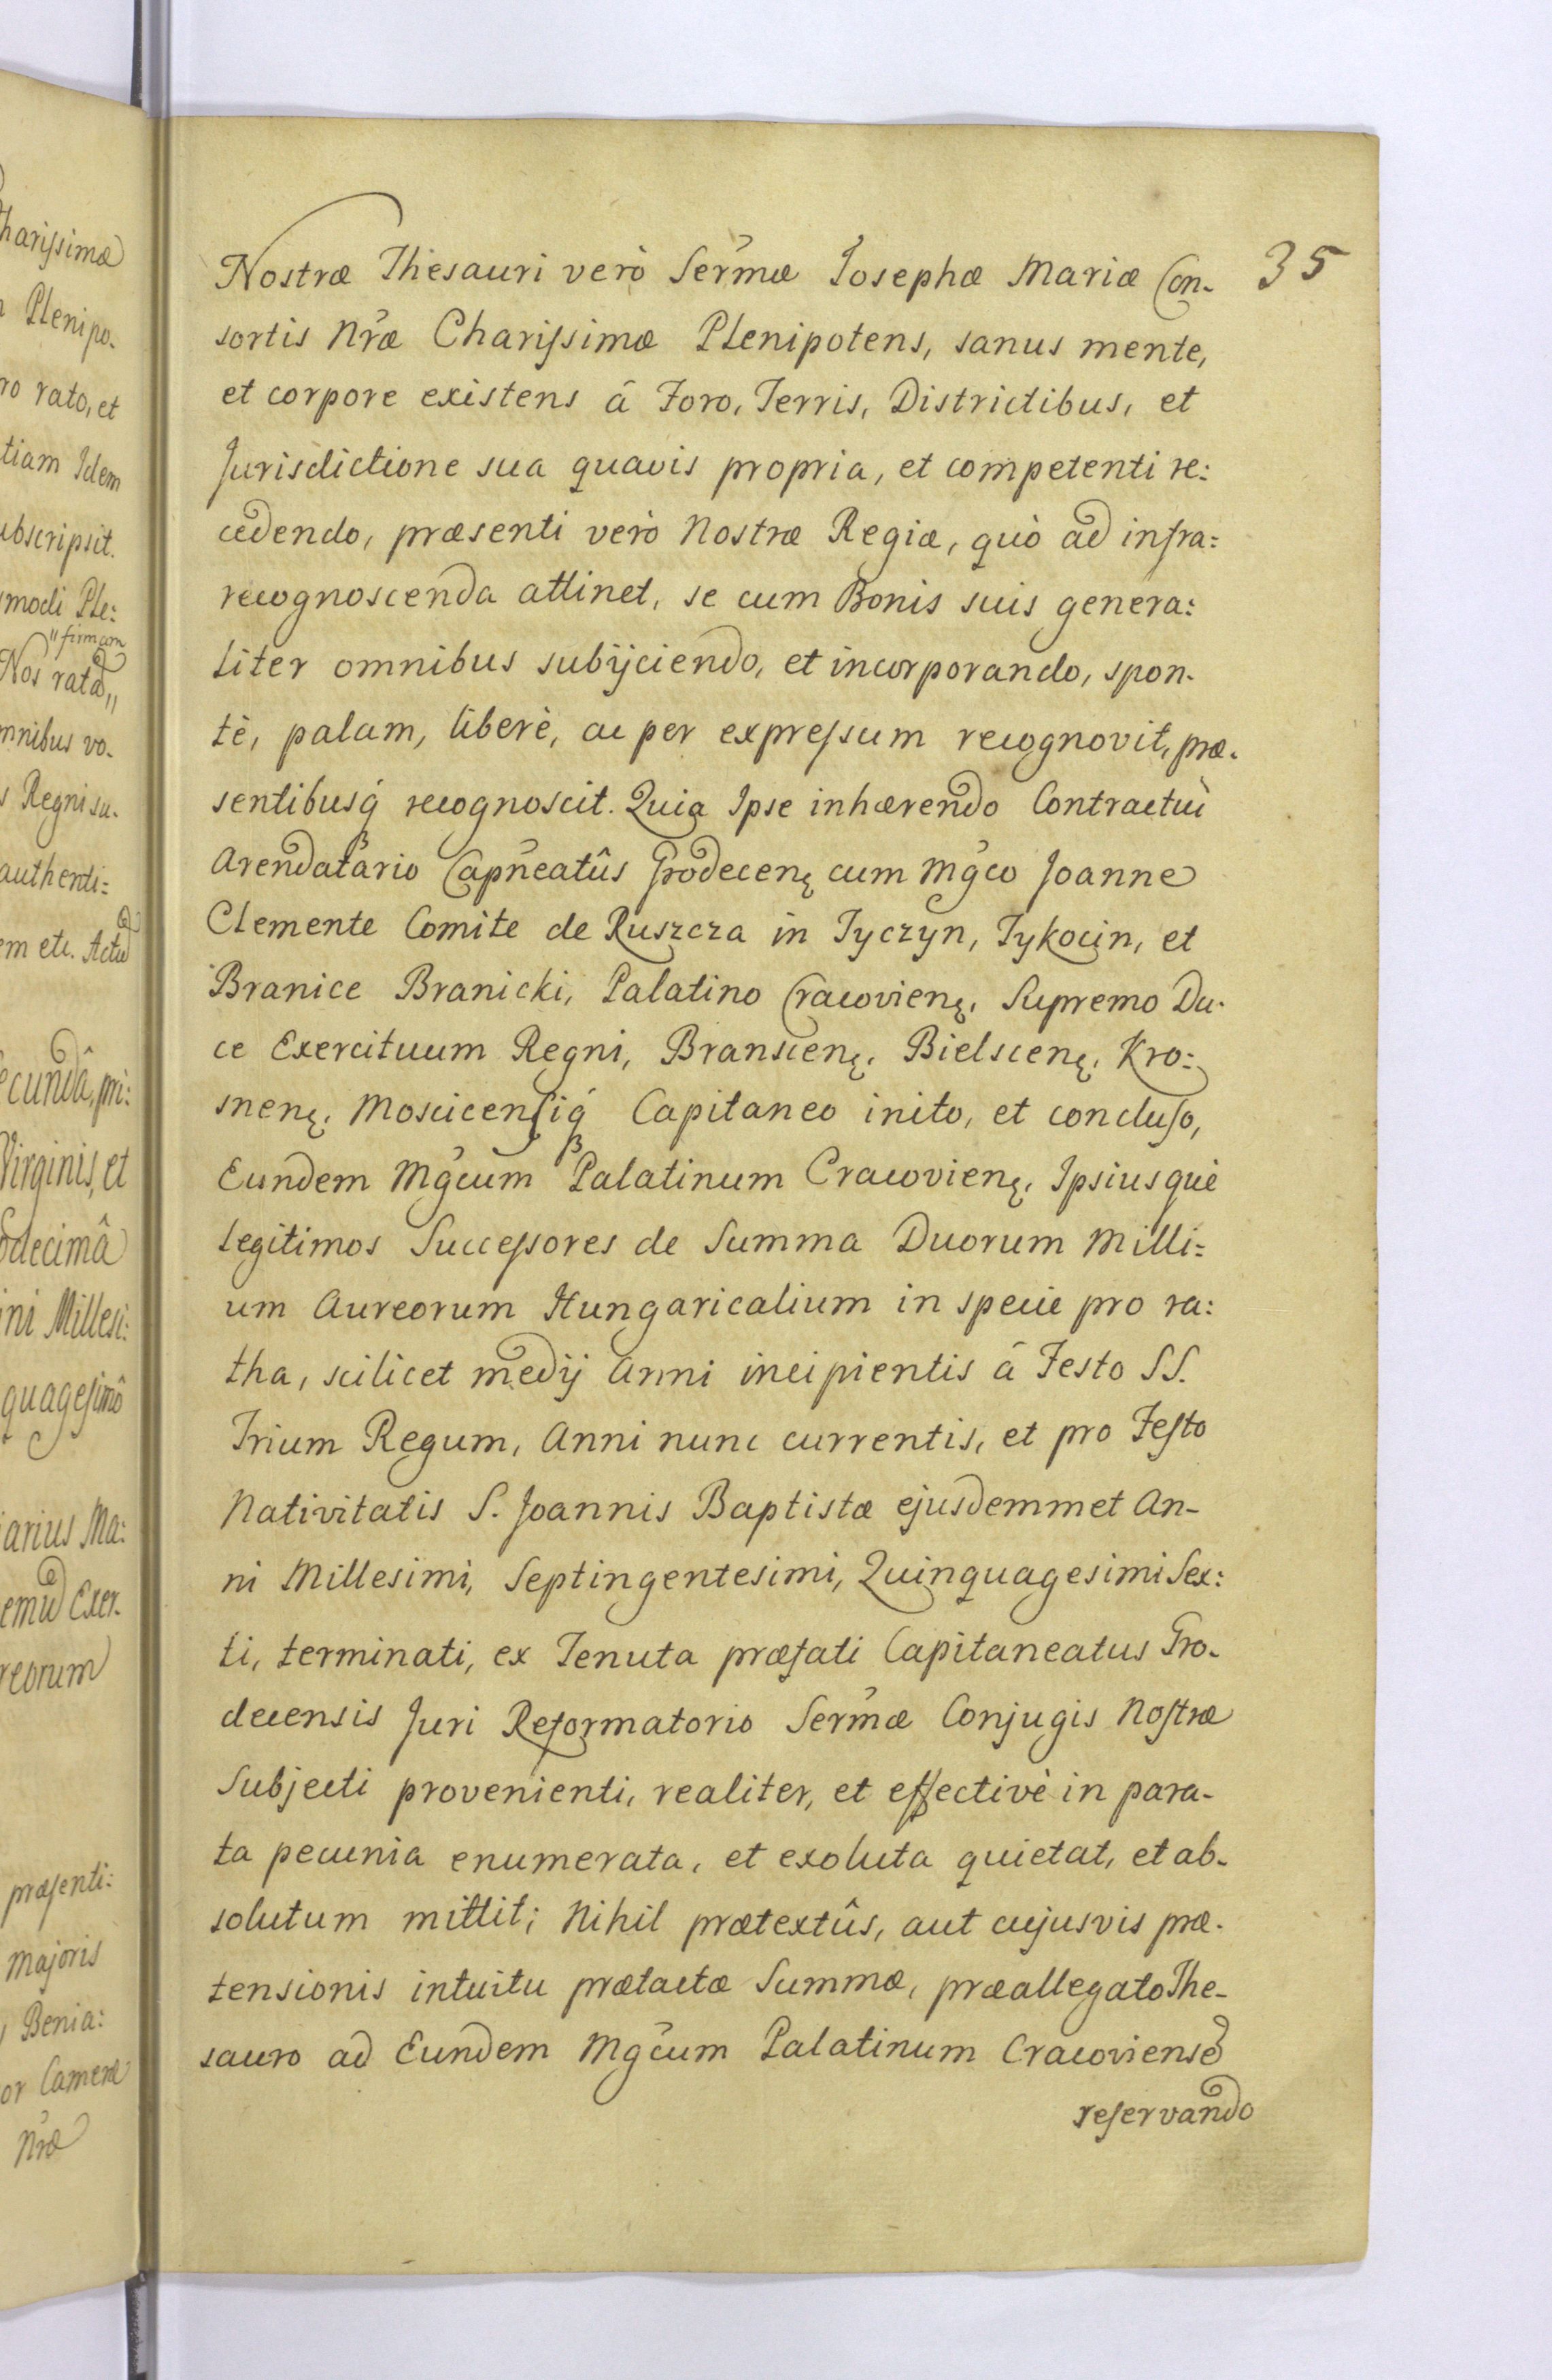 harissimæ
Plenipo-
ro rato, et
tiam Idem
ubscripsit.
modi Ple:
"firm
Nos rata,,
mnibus vo-
s Regni su-
authenti=
em etc. Actu
ecundâ, pri:
Virginis, et
odecimâ
ini Millesi:
quagesimô
arius Ma:
Exer-
reorum
præsenti:
Majoris
Benia:
or Cameræ
Nræ
35
Nostræ Thesauri verò Ser̃mæ Josephæ Mariæ Con-
sortis Nr̃æ Charissimæ Plenipotens, sanus mente,
et corpore existens â Foro, Terris, Districtibus, et
Jurisdictione sua quavis propria, et competenti re:
cedendo, præsenti verò Nostræ Regiæ, quò ad infra=
recognoscenda attinet, se cum Bonis suis genera:
liter omnibus subijciendo, et incorporando, spon-
tè, palam, liberè, ac per expressum recognovit, præ-
sentibusq́ recognoscit. Quia Ipse inhærendo Contractui
Arendatario Capñeatûs Grodecenę cum Mg̃co Joanne
Clemente Comite de Ruszcza in Tyczyn, Tykocin, et
Branice Branicki, Palatino Cracovienę, Supremo Du-
ce Exercituum Regni, Branscenę, Bielscenę, Kro=
snenę, Moscicensiq́ Capitaneo inito, et concluso,
Eundem Mg̃cum Palatinum Cracovienę, Ipsiusquè
legitimos Successores de Summa Duorum Milli=
um Aureorum Hungaricalium in specie pro ra:
tha, scilicet medij Anni incipientis â Festo SS.
Trium Regum, Anni nunc currentis, et pro Festo
Nativitatis S. Joannis Baptistæ ejusdemmet An-
ni Millesimi, Septingentesimi, Quinquagesimi Sex:
ti, terminati, ex Tenuta præfati Capitaneatus Gro-
decensis Juri Reformatorio Ser̃mæ Conjugis Nostræ
Subjecti provenienti, realiter, et effectivè in para-
ta pecunia enumerata, et exoluta quietat, et ab-
solutum mittit; Nihil prætextûs, aut cujusvis præ-
tensionis intuitu prætactæ Summæ, præallegato The-
sauro ad Eundem Mg̃cum Palatinum Cracoviensẽ
reservando